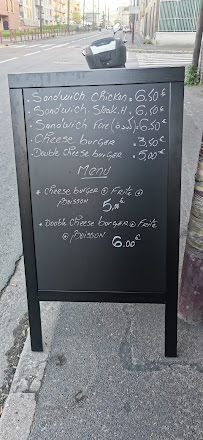 . Sandwich. Chicken = 6,50 €
. Sandwich. Steak.H. 6,50 €
. Sandwich = 6,50 €
. Cheese burger = 3,50 €
. Double Cheese burger = 5,00 €
Menu
* Cheese burger + Frite +
Boisson 5,00 €
* Double Cheese burger + Frite
+ Boisson
6.00 €